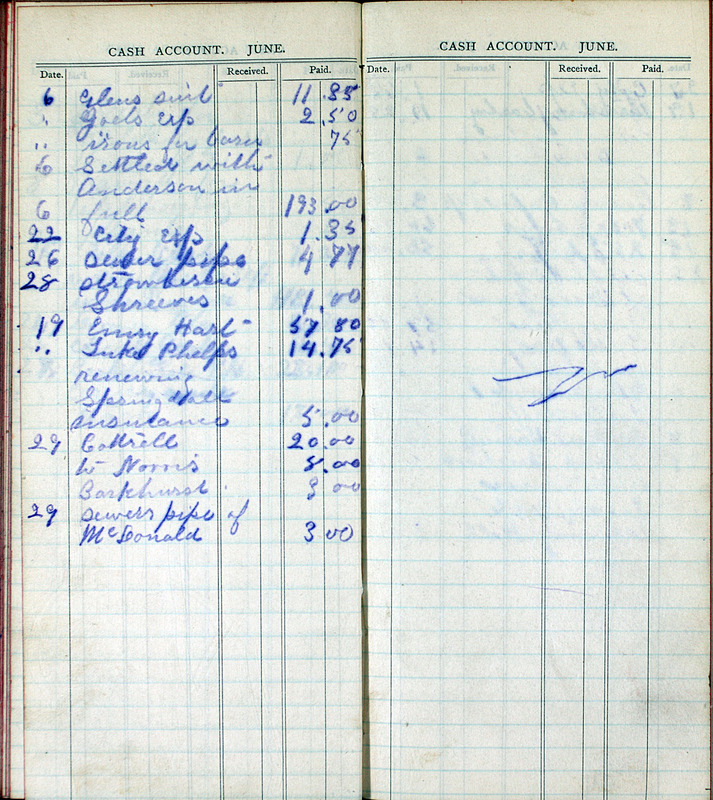 CASH ACCOUNT. JUNE.
Date. Received. Paid.
6 Glens suit 11.85
" Goels exp 2.50
" irons for barn 75
6 Settled with
Anderson in
6 full 193.00
22 City exp 1.35
26 sewer pipe 4 77
28
Shreeves 1.00
19 Emry Hart 57 80
" Luke Phelps 14.75
renewing
Spring
insurance 5.00
29 Cottrell 20.00
to Norris 5.00
Barkhurst 3 00
29 sewers pipe of
McDonald 3 00
CASH ACCOUNT. JUNE.
Date. Received. Paid.